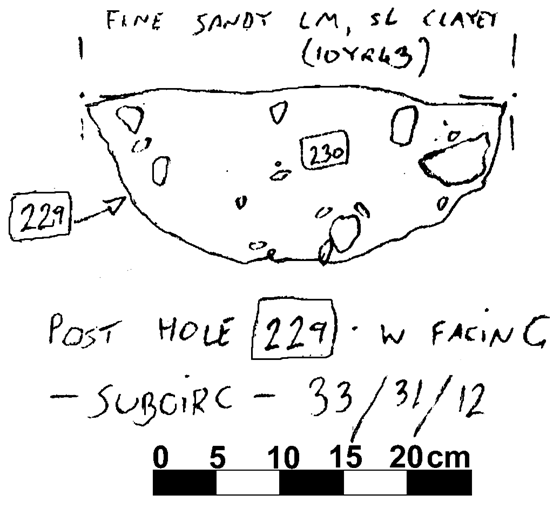 FINE SANDY LM, SL CLAYEY
(10YR43)
230
229
POST HOLE 229 · W FACING
- SUBCIRC - 33/31/12
0 5 10 15 20cm